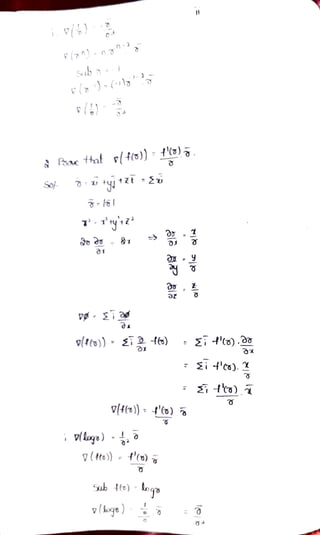 1. ∇(1/r) = -r̄/r³
∇(rⁿ) = n.rⁿ⁻² r̄
Sub n = -1
∇(r⁻¹) = (-1)r⁻¹⁻² r̄
∇(1/r) = -r̄/r³
2. Prove that ∇(f(r)) = f'(r)/r r̄.
Sol. r̄ = xī + yj̄ + zk̄ = Σxī
r = |r̄|
r² = x² + y² + z²
2r ∂r/∂x = 2x ⇒ ∂r/∂x = x/r
∂r/∂y = y/r
∂r/∂z = z/r
∇φ = Σī ∂φ/∂x
∇(f(r)) = Σī ∂/∂x f(r) = Σī f'(r). ∂r/∂x
= Σī f'(r). x/r
= Σī f'(r)/r . x
∇(f(r)) = f'(r)/r r̄
i. ∇(logr) = 1/r² r̄
∇(f(r)) = f'(r)/r r̄
Sub f(r) = logr
∇(logr) = (1/r)/r r̄ = r̄/r²